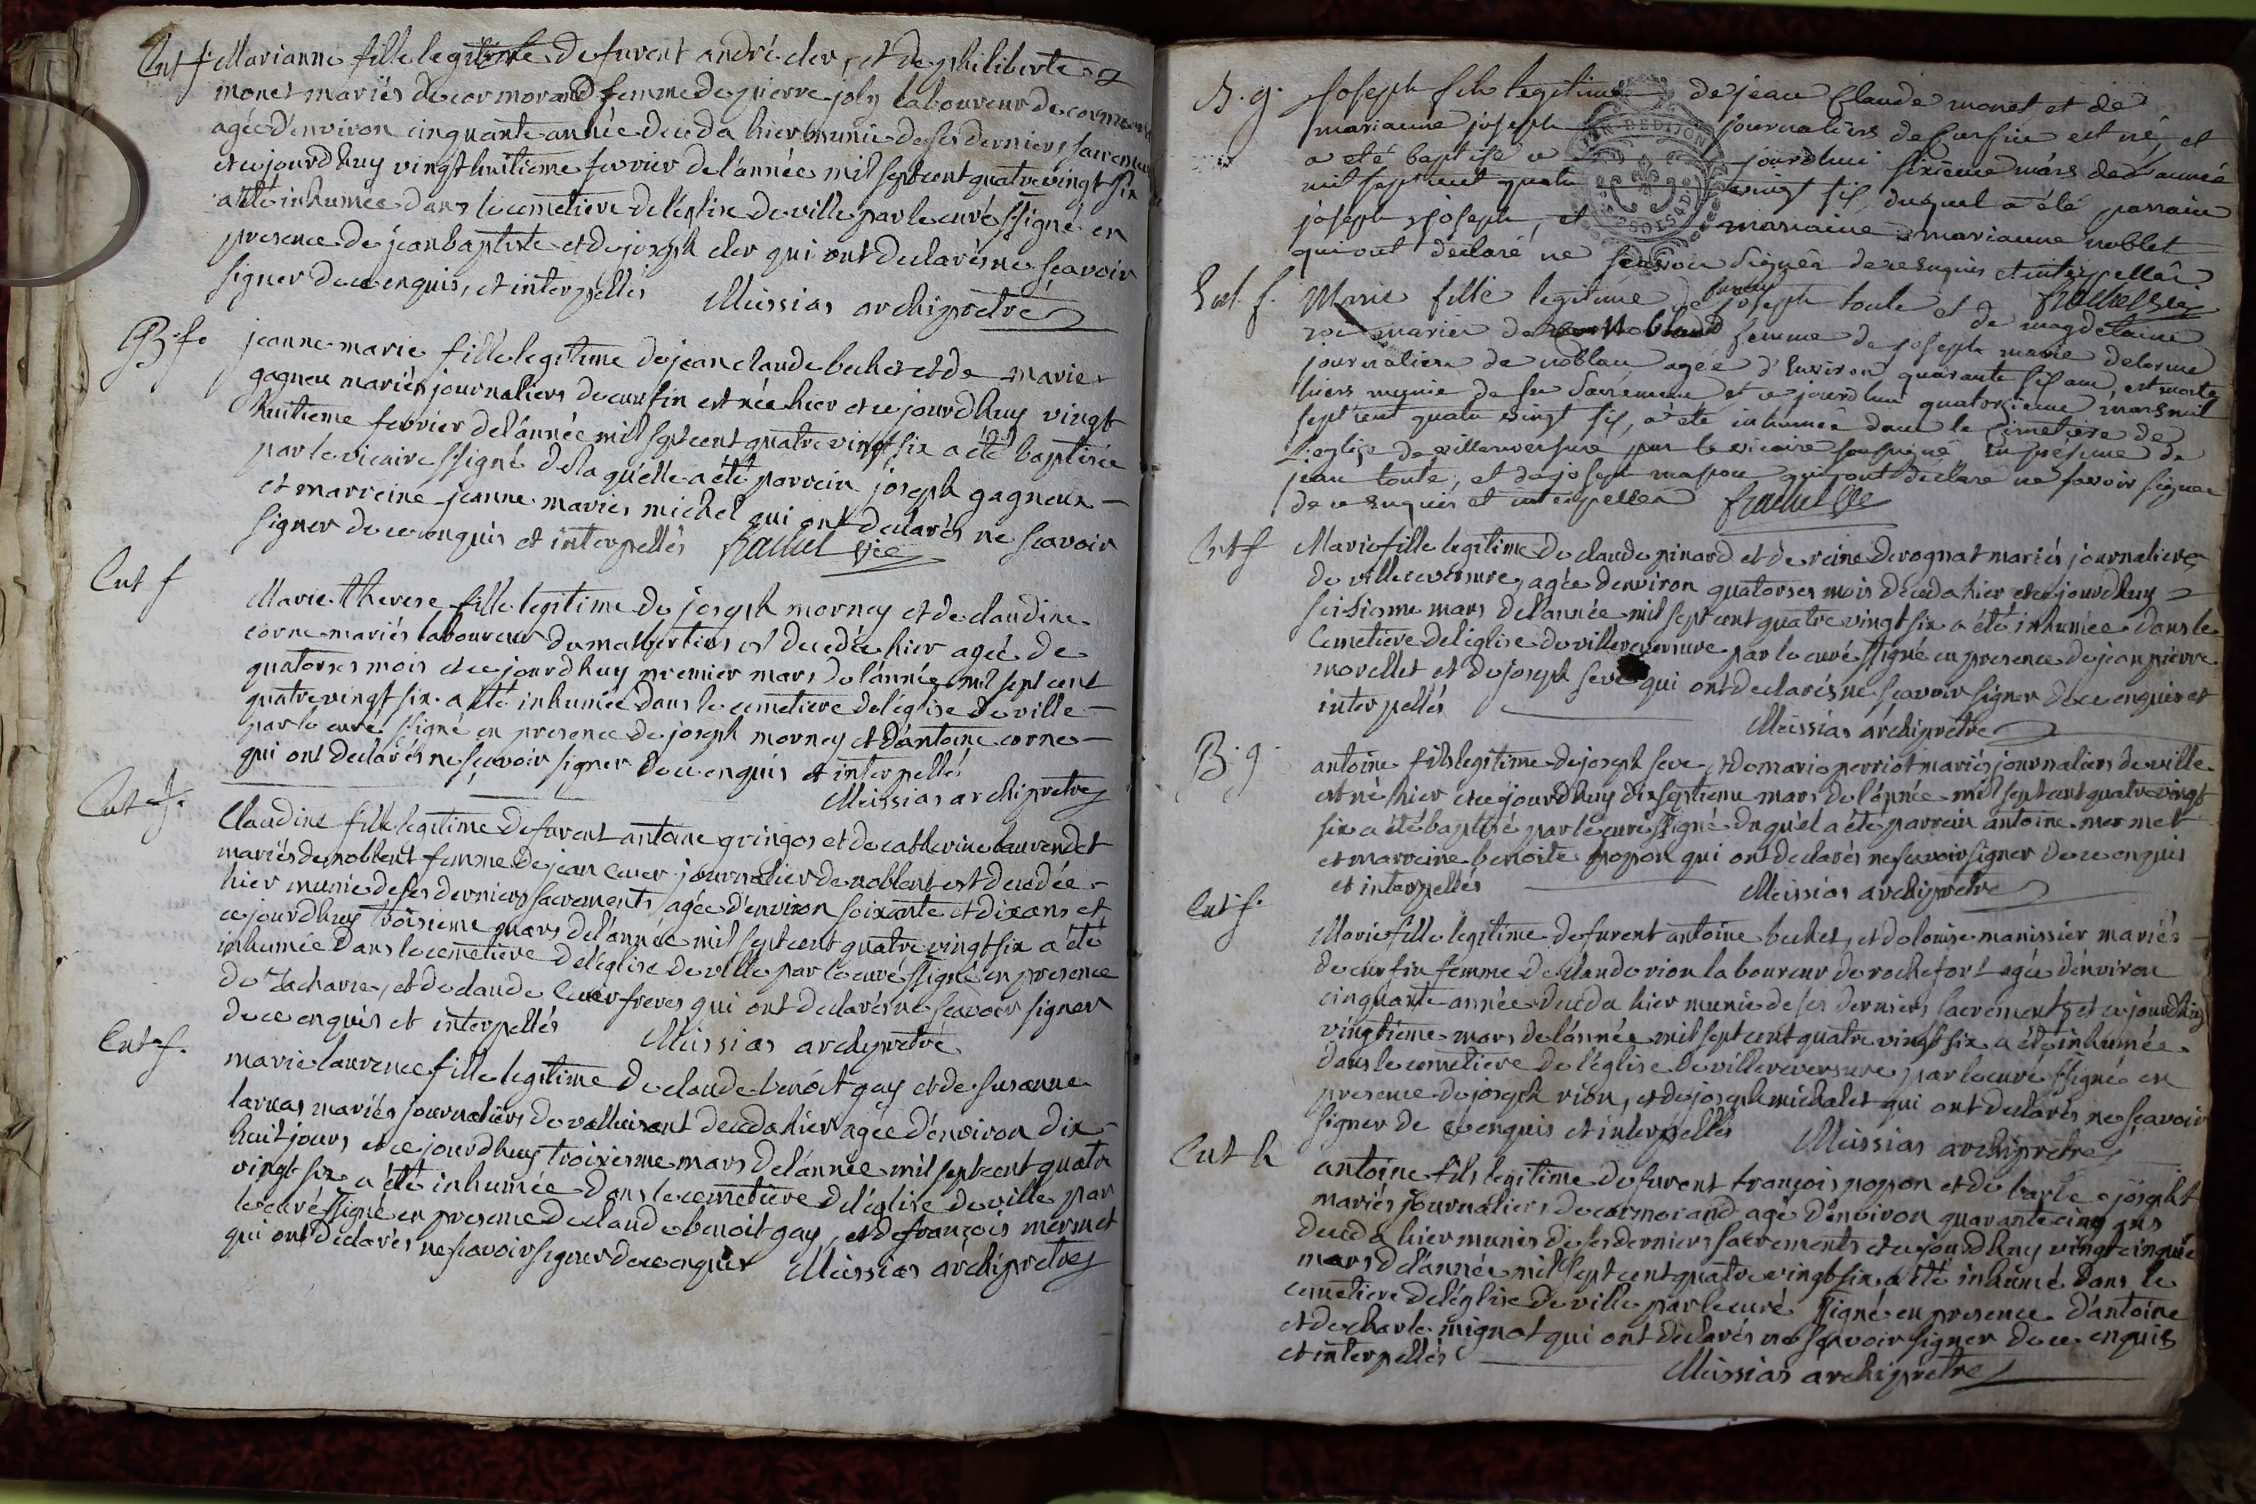 Ent f Marianne fille legitime de furent andré cler, et de philiberte
monet mariés de cormorand femme de pierre joly laboureur de cormorand
agée d'environ cinquante année deceda hier munie de ses derniers sacrements
et cejourd'huy vingt huitieme fevrier de l'année mil sept cent quatre vingt six
a été inhumée dans le cemetiere de l'église de ville par le curé ssigné en
presence de jean baptiste et de joseph cler qui ont declarés ne scavoir
signer de ce enquis, et interpellés Messias archiprètre
B. f. jeanne marie fille legitime de jean claude becher et de marie
gagneu mariés journaliers de cursin est née hier et cejourd'huy vingt
huitieme fevrier de l'année mil sept cent quatre vingt six a été baptisée
par le vicaire ssigné de la qu'elle a été parrein joseph gagneux
et marreine jeanne marie michel qui ont declarés ne scavoir
signer de ce enquis et interpellés vic
Ent f Marie therese fille legitime de joseph mornay et de claudine
corne mariés laboureur de malbertins est decedée hier agée de
quatorses mois et cejourd'huy premier mars de l'année mil sept cent
quatre vingt six a été inhumée dans le cemetiere de l'église de ville
par le curé ssigné en presence de joseph mornay et d'antoine corne
qui ont declarés ne scavoir signer de ce enquis et interpellés
Messias archiprètre
Ent f. Claudine fille legitime de furent antoine gringos et de catherine laurendet
mariés de noblent femme de jean cuer journalier de noblent est decedée
hier munie de ses derniers sacrements agée d'environ soixante et dix ans et
cejourd'huy troisieme mars de l'année mil sept cent quatre vingt six a été
inhumée dans le cemetiere de l'église de ville par le curé ssigné en presence
de Zacharie, et de claude cuer freres qui ont declarés ne scavoir signer
de ce enquis et interpellés Messias archiprètre
Ent f. marie laurence fille legitime de claude benoit gay et de susanne
mariés journaliers de deceda hier agée d'environ dix
huit jours et cejourd'huy troisiesme mars de l'année mil sept cent quatre
vingt six a été inhumée dans le cemetiere de l'église de ville par
le curé ssigné en presence de claude benoit gay, et de françois mermet
qui ont declarés ne scavoir signer de ce enquis Messias archiprètre
B. g. joseph fils legitime de jean Claude monet et de
marianne joseph journaliers de Cursin est né, et
a eté baptisé ce jourdhui sixieme mars de l'année
mil sept cent quatre vingt six, duquel a été parrain
joseph joseph, et marraine marianne noblet
qui ont declaré ne scavoir signer de ce enquis et interpellés
Ent. f. Marie fille legitime de furent joseph toule et de magdelaine
mariés de femme de joseph marie delorme
journaliers de noblan agée d'Environ quarante six ans, est morte
hiers munie de sacremens et ce jourdhui quatorzieme mars mil
sept cent quatre vingt six, a été inhumée dans le Cimetiere de
l'eglise de villereversure par le vicaire soussigné En présence de
jean toule, et de joseph mapon qui ont declaré ne savoir signer
de ce enquis et interpellés
Ent f Marie fille legitime de claude pinard et de reine derognat mariés journaliers
de villereversure, agée d'environ quatorses mois deceda hier et cejourd'huy
seisiesme mars de l'année mil sept cent quatre vingt six a été inhumée dans le
Cemetiere de l'église de villereversure par le curé ssigné en presence de jean pierre
morellet et de joseph seve qui ont declarés ne scavoir signer de ce enquis et
interpellés Messias archiprètre
B. g. antoine fils legitime de joseph seve, et de marie perriot mariés journaliers de ville
est né hier et cejourd'huy dix septieme mars de l'année mil sept cent quatre vingt
six a été baptisé par le curé ssigné du qu'el a été parrein antoine mermet
et marreine benoite popon qui ont declarés ne scavoir signer de ce enquis
et interpellés Messias archiprètre
Ent f. Marie fille legitime de furent antoine becher, et de louise manissier mariés
de cursin femme de claude rion laboureur de rochefort agée d'environ
cinquante année deceda hier munie de ses derniers sacrements, et cejourd'huy
vingtieme mars de l'année mil sept cent quatre vingt six a été inhumée
dans le cemetiere de l'église de villereversure, par le curé ssigné en
presence de joseph rion, et de joseph michalet qui ont declarés ne scavoir
signer de ce enquis et interpellés Messias archiprètre
Ent h antoine fils legitime de furent françois popon et de barbe joseph
mariés journaliers de cormorand agé d'environ quarante cinq ans
deceda hier munis de ses derniers sacrements et cejourd'huy vingt cinquie
mars de l'année mil sept cent quatre vingt six a été inhumé dans le
cemetiere de l'église de ville par le curé ssigné en presence d'antoine
et de charle mignot qui ont déclarés ne scavoir signer de ce enquis
et interpellés Messias archiprètre